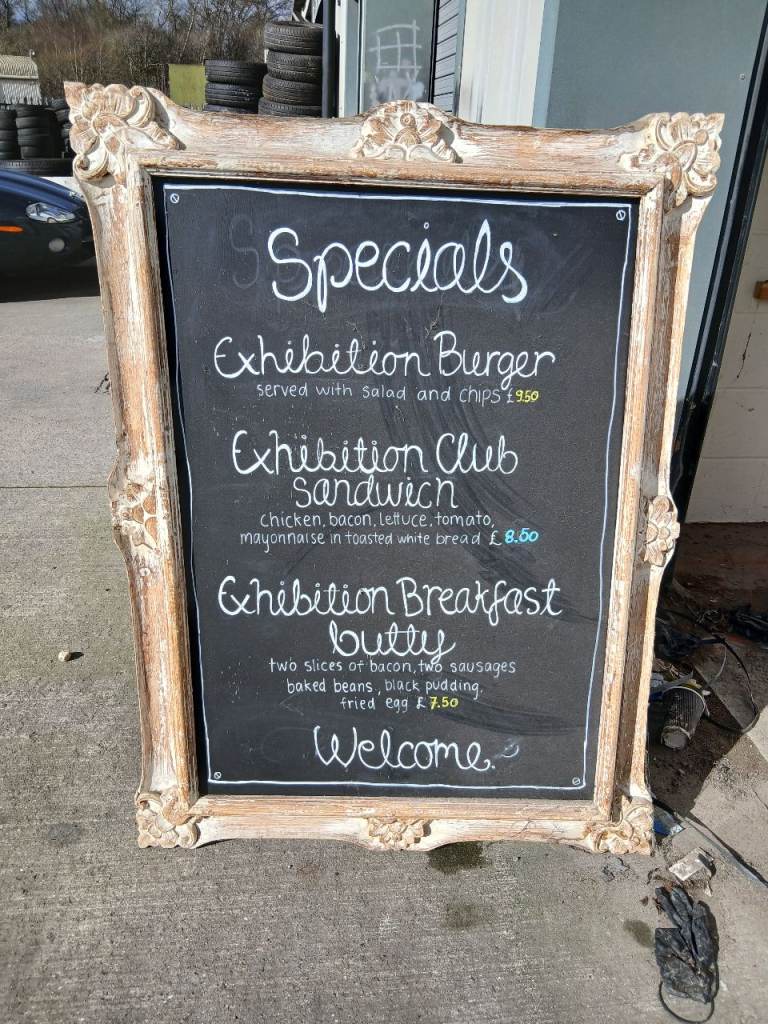 Specials
Exhibition Burger
served with salad and chips £9.50
Exhibition Club
Sandwich
chicken, bacon, lettuce, tomato,
mayonnaise in toasted white bread £ 8.50
Exhibition Breakfast
butty
two slices of bacon, two sausages
baked beans, black pudding,
fried egg £ 7.50
Welcome.